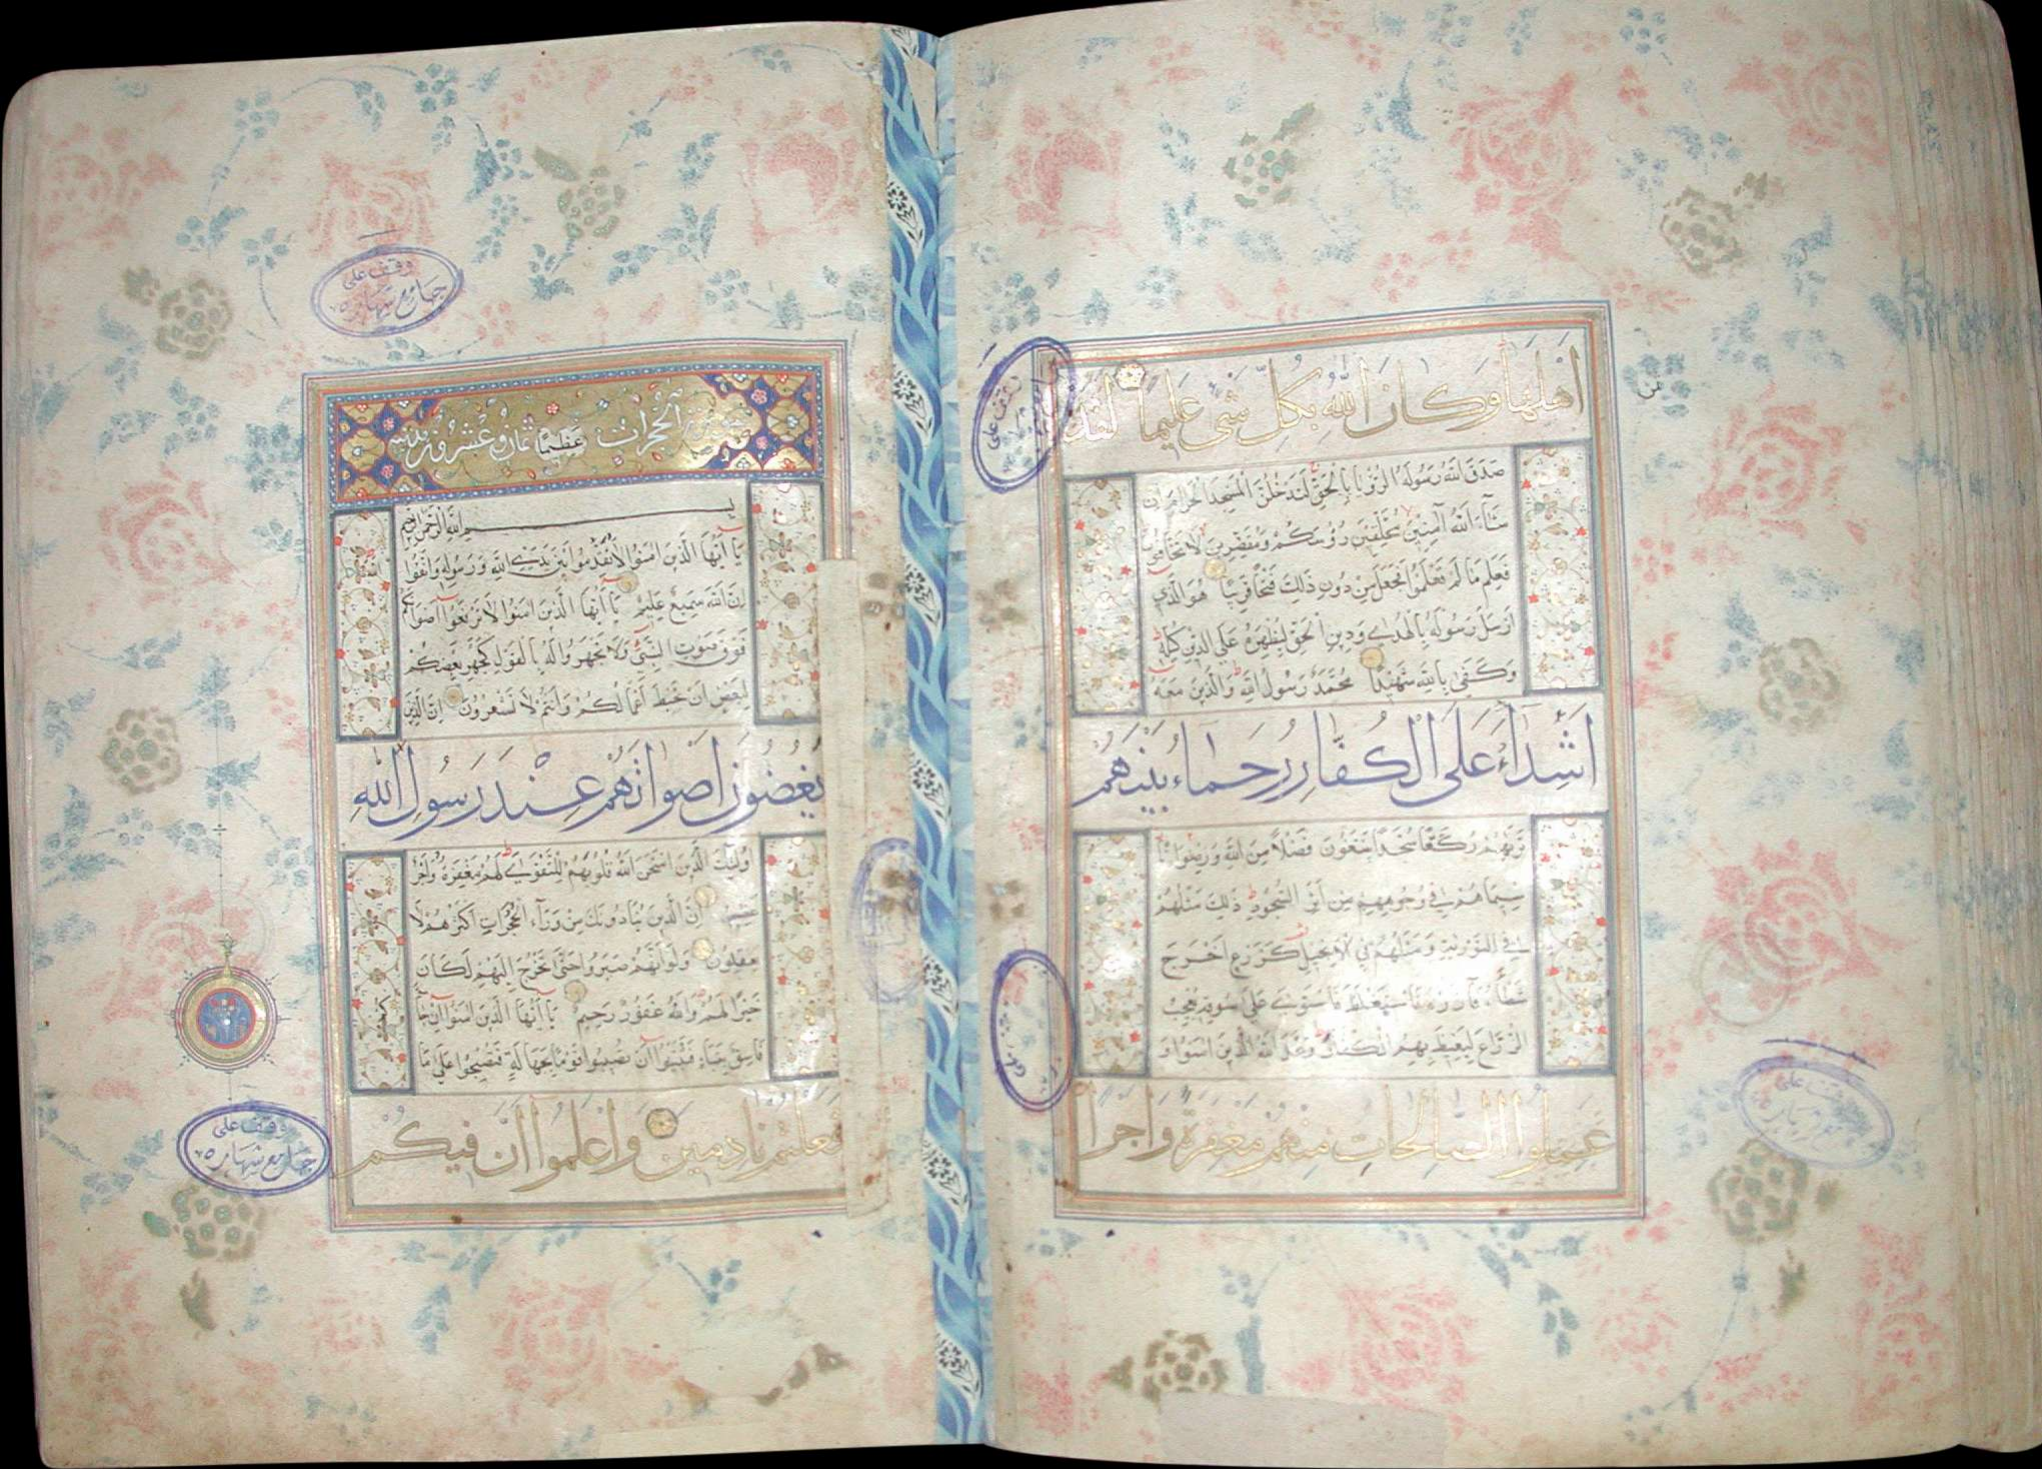 اهلها وكان الله بكل شئ عليما لقد
صدق الله رسوله الرؤيا بالحق لتدخلن المسجد الحرام ان
شاء الله آمنين محلقين رؤسكم ومقصرين لا تخافون
فعلم ما لم تعلموا فجعل من دون ذلك فتحا قريبا هو الذي
ارسل رسوله بالهدى ودين الحق ليظهره على الدين كله
وكفى بالله شهيدا محمد رسول الله والذين معه
اشداء على الكفار رحماء بينهم
تريهم ركعا سجدا يبتغون فضلا من الله ورضوانا
سيماهم في وجوههم من اثر السجود ذلك مثلهم
في التورية ومثلهم في الانجيل كزرع اخرج
شطأه فآزره فاستغلظ فاستوى على سوقه يعجب
الزراع ليغيظ بهم الكفار وعد الله الذين امنوا و
عملوا الصالحات منهم مغفرة واجرا
سورة الحجرات عظيما ثمان وعشرون مدنية
بسم الله الرحمن الرحيم
يا ايها الذين امنوا لا تقدموا بين يدي الله ورسوله واتقوا الله
ان الله سميع عليم يا ايها الذين امنوا لا ترفعوا اصواتكم
فوق صوت النبي ولا تجهروا له بالقول كجهر بعضكم
لبعض ان تحبط اعمالكم وانتم لا تشعرون ان الذين
يغضون اصواتهم عند رسول الله
اولئك الذين امتحن الله قلوبهم للتقوى لهم مغفرة واجر
عظيم ان الذين ينادونك من وراء الحجرات اكثرهم لا
يعقلون ولو انهم صبروا حتى تخرج اليهم لكان
خيرا لهم والله غفور رحيم يا ايها الذين امنوا ان جاءكم
فاسق بنباء فتبينوا ان تصيبوا قوما بجهالة فتصبحوا على ما
فعلتم نادمين واعلموا ان فيكم
وقف على
جامع شهار
وقف على
جامع شهار
وقف على
وقف على